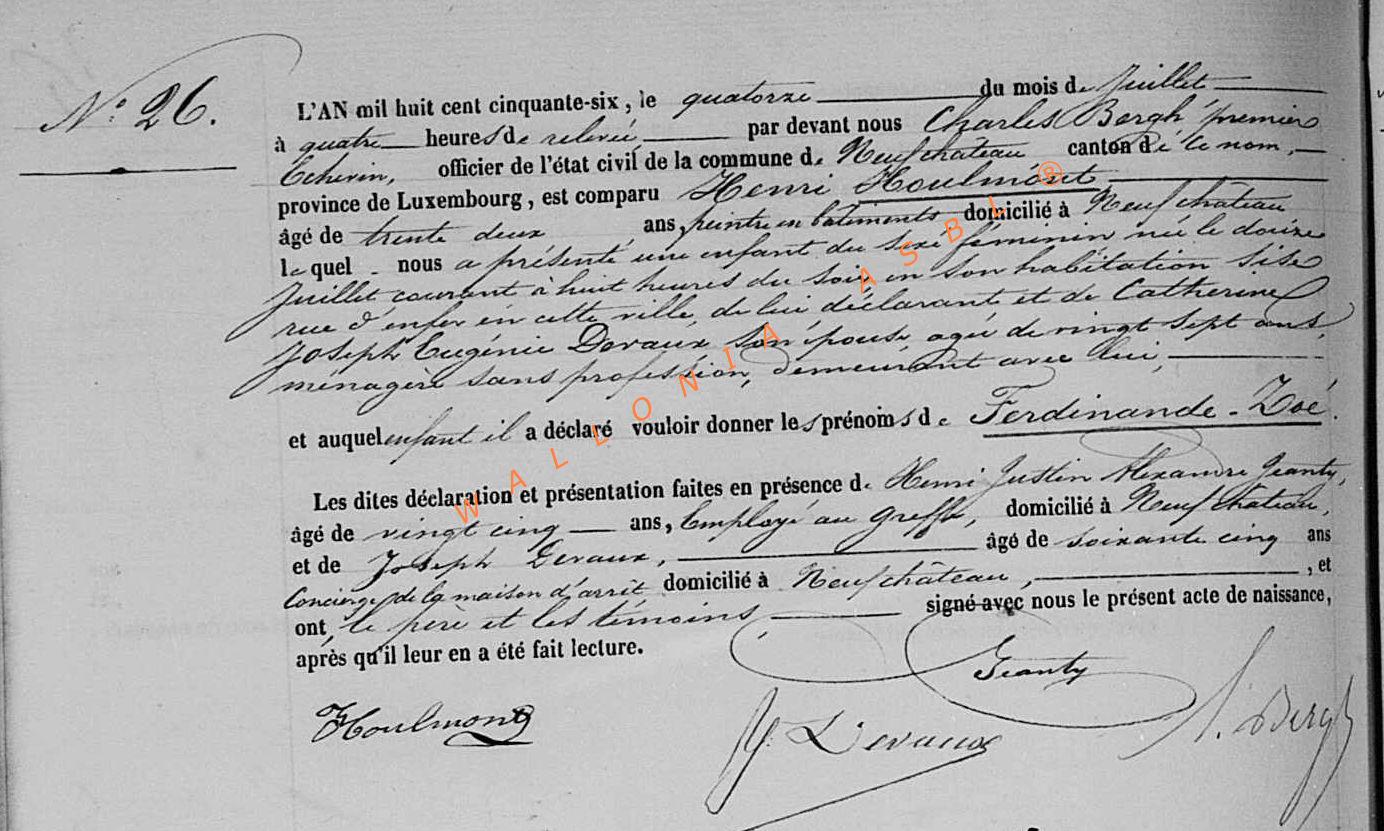 N.º 26.
L'AN mil huit cent cinquante-six, le quatorze du mois de Juillet
à quatre heures de relevée, par devant nous Charles Bergh premier
Echevin, officier de l'état civil de la commune de Neufchateau canton de le nom,
province de Luxembourg, est comparu Henri Houlmont
âgé de trente deux ans, peintre en batiments domicilié à Neufchâteau
lequel nous a présenté une enfant du sexe féminin née le douze
Juillet courant à huit heures du soir en son habitation sise
rue d'enfer en cette ville, de lui déclarant et de Catherine
Joseph Eugénie Devaux son épouse agée de vingt sept ans,
ménagère sans profession, demeurant avec lui,
et auquel enfant il a déclaré vouloir donner les prénoms de Ferdinande-Zoé.
Les dites déclaration et présentation faites en présence de Henri Justin Alexandre Jeanty,
âgé de vingt cinq ans, Employé au greffe, domicilié à Neufchateau,
et de Joseph Devaux, âgé de soixante cinq ans
Concierge de la maison d'arrêt domicilié à Neufchâteau, , et
ont, le père et les témoins, signé avec nous le présent acte de naissance,
après qu'il leur en a été fait lecture.
Jeanty
Houlmont
Devaux
Bergh
WALLONIA ASBL ®